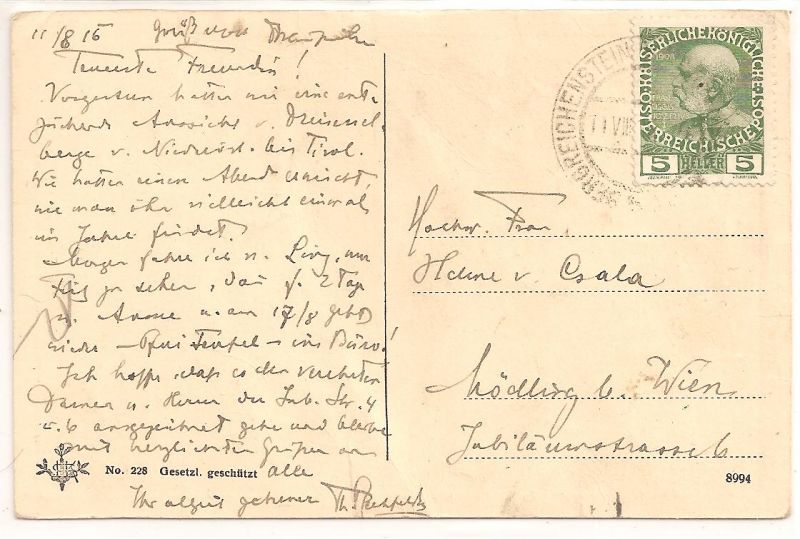 11/8 16 Gruß von
Teuerste Freundin!
Vorgestern hatten wir eine ent-
zückende Aussicht v. Dreisessel-
berge v. Niederöst. bis Tirol.
Wir hatten einen Abend
wie man ihn vielleicht einmal
im Jahre findet.
Morgen fahre ich n. Linz, um
zu sehen, dann f. 2 Tage
n. u. am 17/8 geht's
wieder – Pfui Teufel – ins Büro!
Ich hoffe, dass es den verehrten
Damen u. Herren der Jub. Str. 4
u. 6 ausgezeichnet gehe und bleibe
mit herzlichsten Grüßen an
alle
Ihr allzeit getreuer Th.
No. 228 Gesetzl. geschützt
BERGREICHENSTEIN
11 VIII
1908
KAISERLICHE KÖNIGLICHE
ÖSTERREICHISCHE
5 HELLER 5
Hochw. Frau
Helene v. Csala
Mödling b. Wien
Jubiläumsstrasse 6
8994